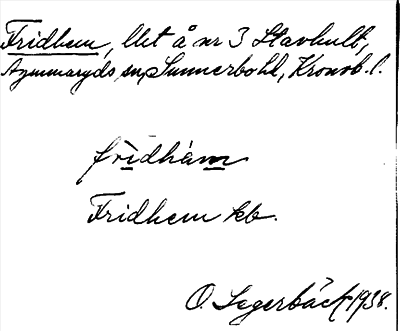 Fridhem, lht å nr 3 Stavhult,
Agunnaryds sn, Sunnerbo hd, Kronob. l.
frìdhàm
Fridhem kb.
O. Segerbäck 1938.